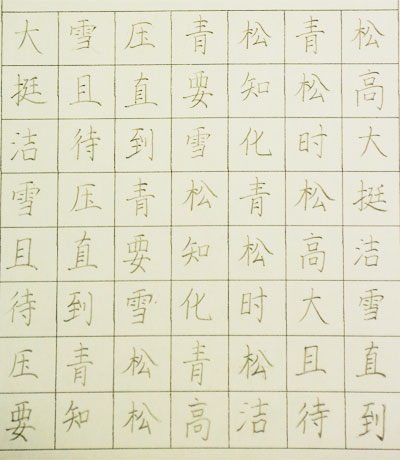 大雪压青松青松
挺且直要知松高
洁待到雪化时大
雪压青松青松挺
且直要知松高洁
待到雪化时大雪
压青松青松且直
要知松高洁待到